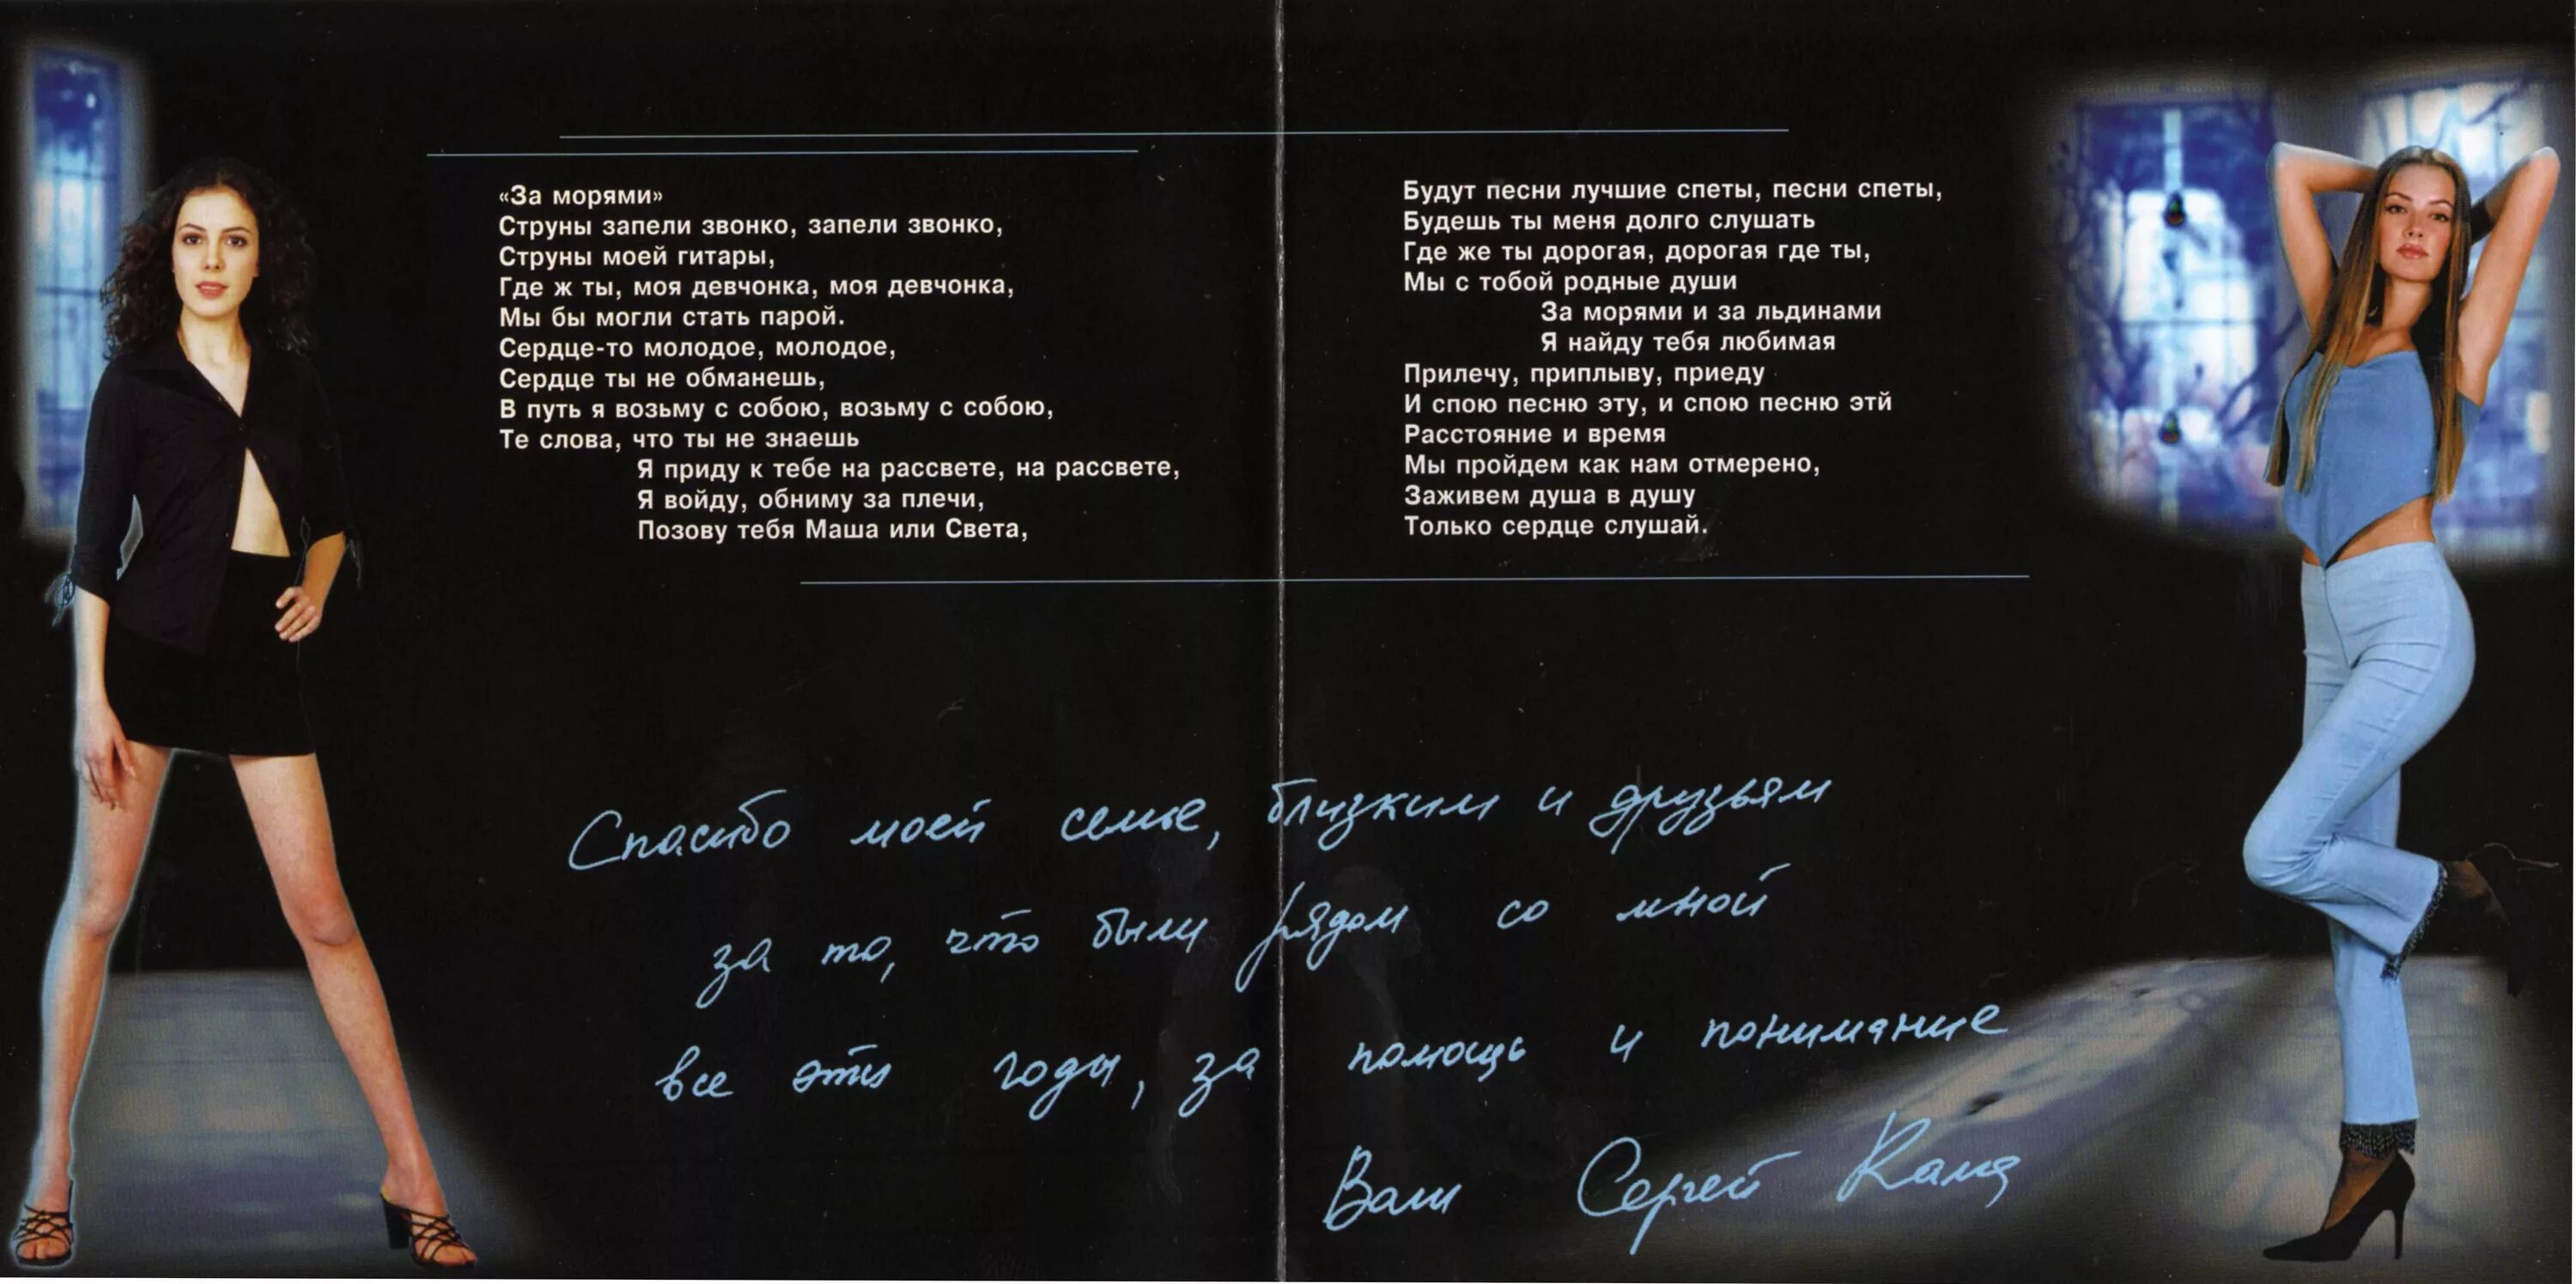 «За морями»
Струны запели звонко, запели звонко,
Струны моей гитары,
Где ж ты, моя девчонка, моя девчонка,
Мы бы могли стать парой.
Сердце-то молодое, молодое,
Сердце ты не обманешь,
В путь я возьму с собою, возьму с собою,
Те слова, что ты не знаешь
Я приду к тебе на рассвете, на рассвете,
Я войду, обниму за плечи,
Позову тебя Маша или Света,
Будут песни лучшие спеты, песни спеты,
Будешь ты меня долго слушать
Где же ты дорогая, дорогая где ты,
Мы с тобой родные души
За морями и за льдинами
Я найду тебя любимая
Прилечу, приплыву, приеду
И спою песню эту, и спою песню этй
Расстояние и время
Мы пройдем как нам отмерено,
Заживем душа в душу
Только сердце слушай.
Спасибо моей семье, близким и друзьям
за то, что были рядом со мной
все эти годы, за помощь и понимание
Ваш Сергей Кама